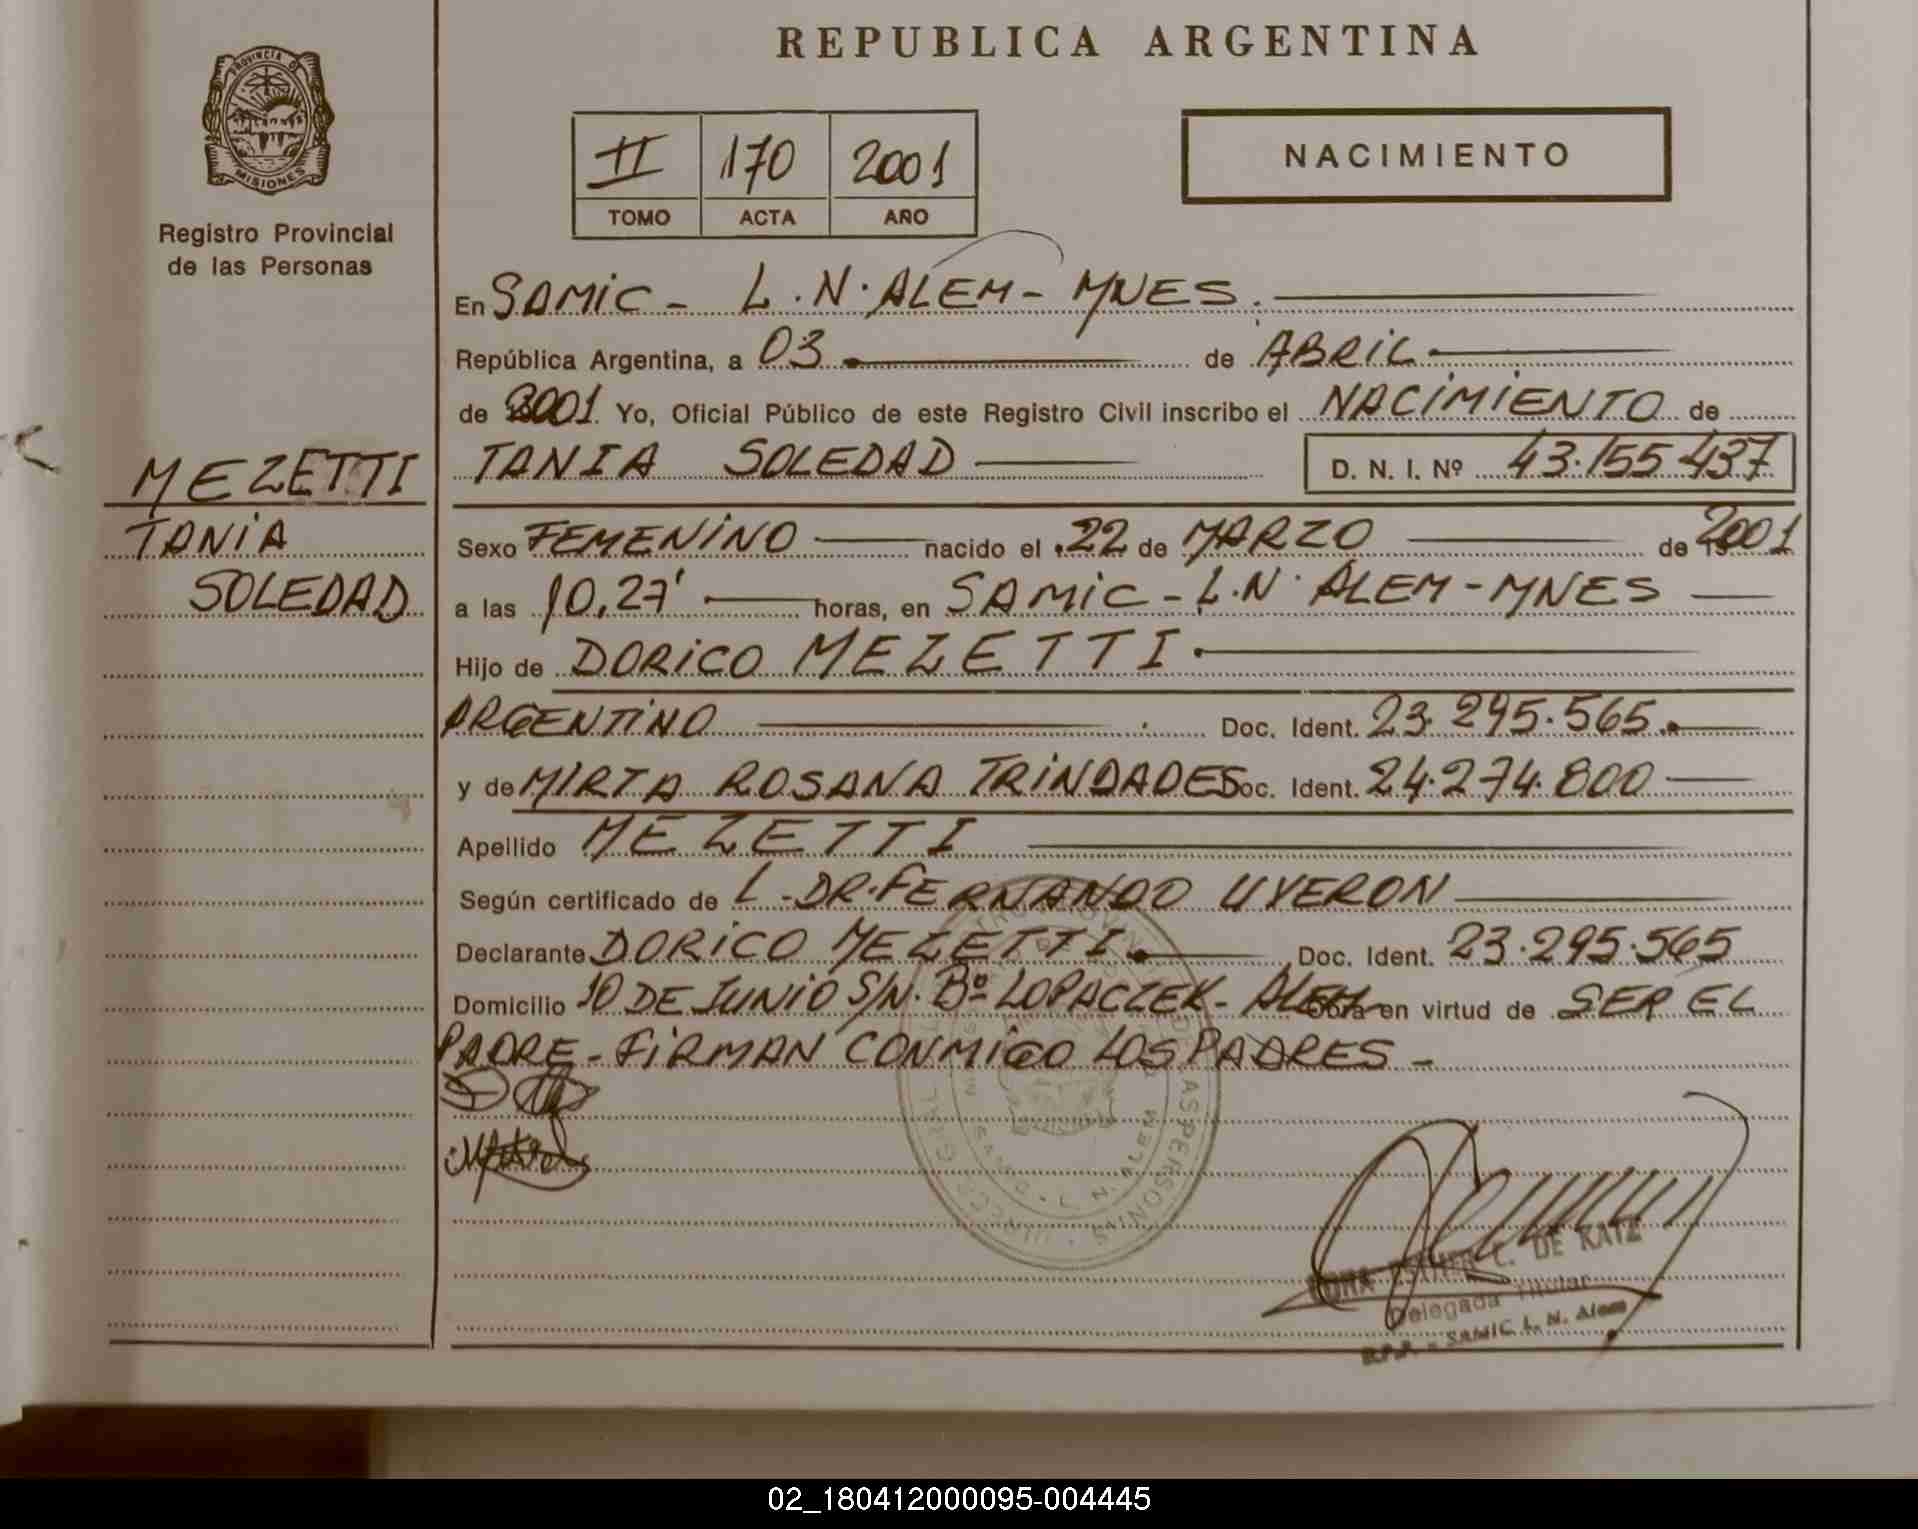 REPUBLICA ARGENTINA
PROVINCIA DE
MISIONES
Registro Provincial
de las Personas
II 170 2001
TOMO ACTA AÑO
NACIMIENTO
En SAMIC - L.N. ALEM - MNES.
República Argentina, a 03 de ABRIL
de 2001 Yo, Oficial Público de este Registro Civil inscribo el NACIMIENTO de
TANIA SOLEDAD D. N. I. Nº 43.155.437
MEZETTI
TANIA
SOLEDAD
Sexo FEMENINO nacido el 22 de MARZO de 2001
a las 10,27' horas, en SAMIC - L.N. ALEM - MNES
Hijo de DORICO MEZETTI
ARGENTINO Doc. Ident. 23.295.565.
y de MIRTA ROSANA TRINDADES Doc. Ident. 24.274.800
Apellido MEZETTI
Según certificado de L - DR. FERNANDO UYERON
Declarante DORICO MEZETTI Doc. Ident. 23.295.565
Domicilio 10 DE JUNIO S/N. Bº LOPACZEK - ALEM Obra en virtud de SER EL
PADRE - FIRMAN CONMIGO LOS PADRES -
L. N. ALEM
ESTHER C. DE KATZ
Delegada Titular
R.P.P. - SAMIC L. N. Alem
02_180412000095-004445